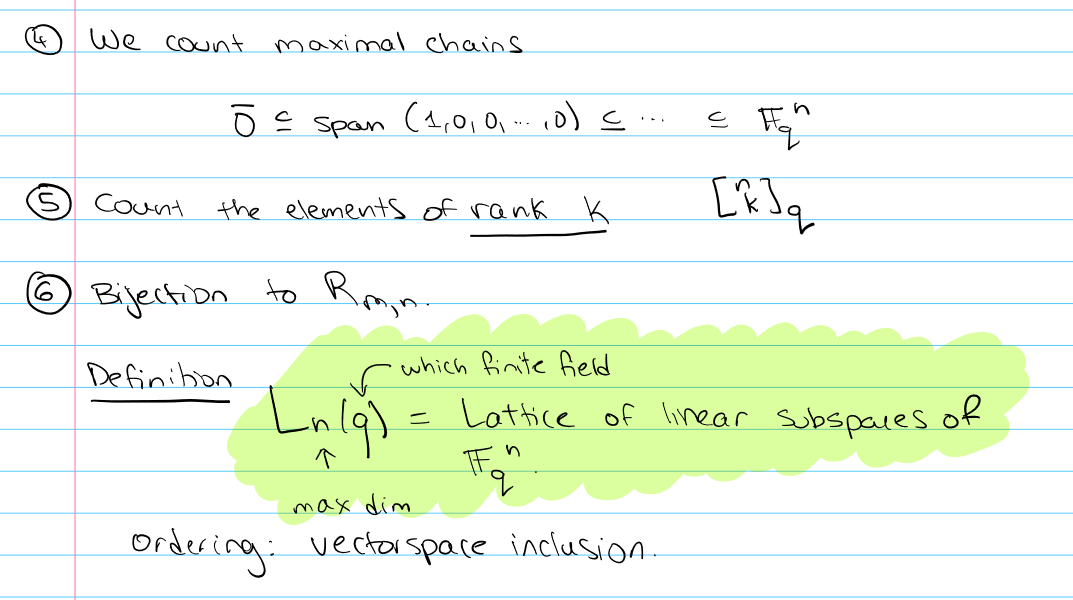 ④ We count maximal chains
0̅ ⊆ span (1,0,0,...,0) ⊆ ... ⊆ 𝔽_q^n
⑤ Count the elements of rank k [n k]_q
⑥ Bijection to R_{m,n}.
which finite field
Definition L_n(q) = Lattice of linear subspaces of
𝔽_q^n.
↑
max dim
Ordering: vectorspace inclusion.